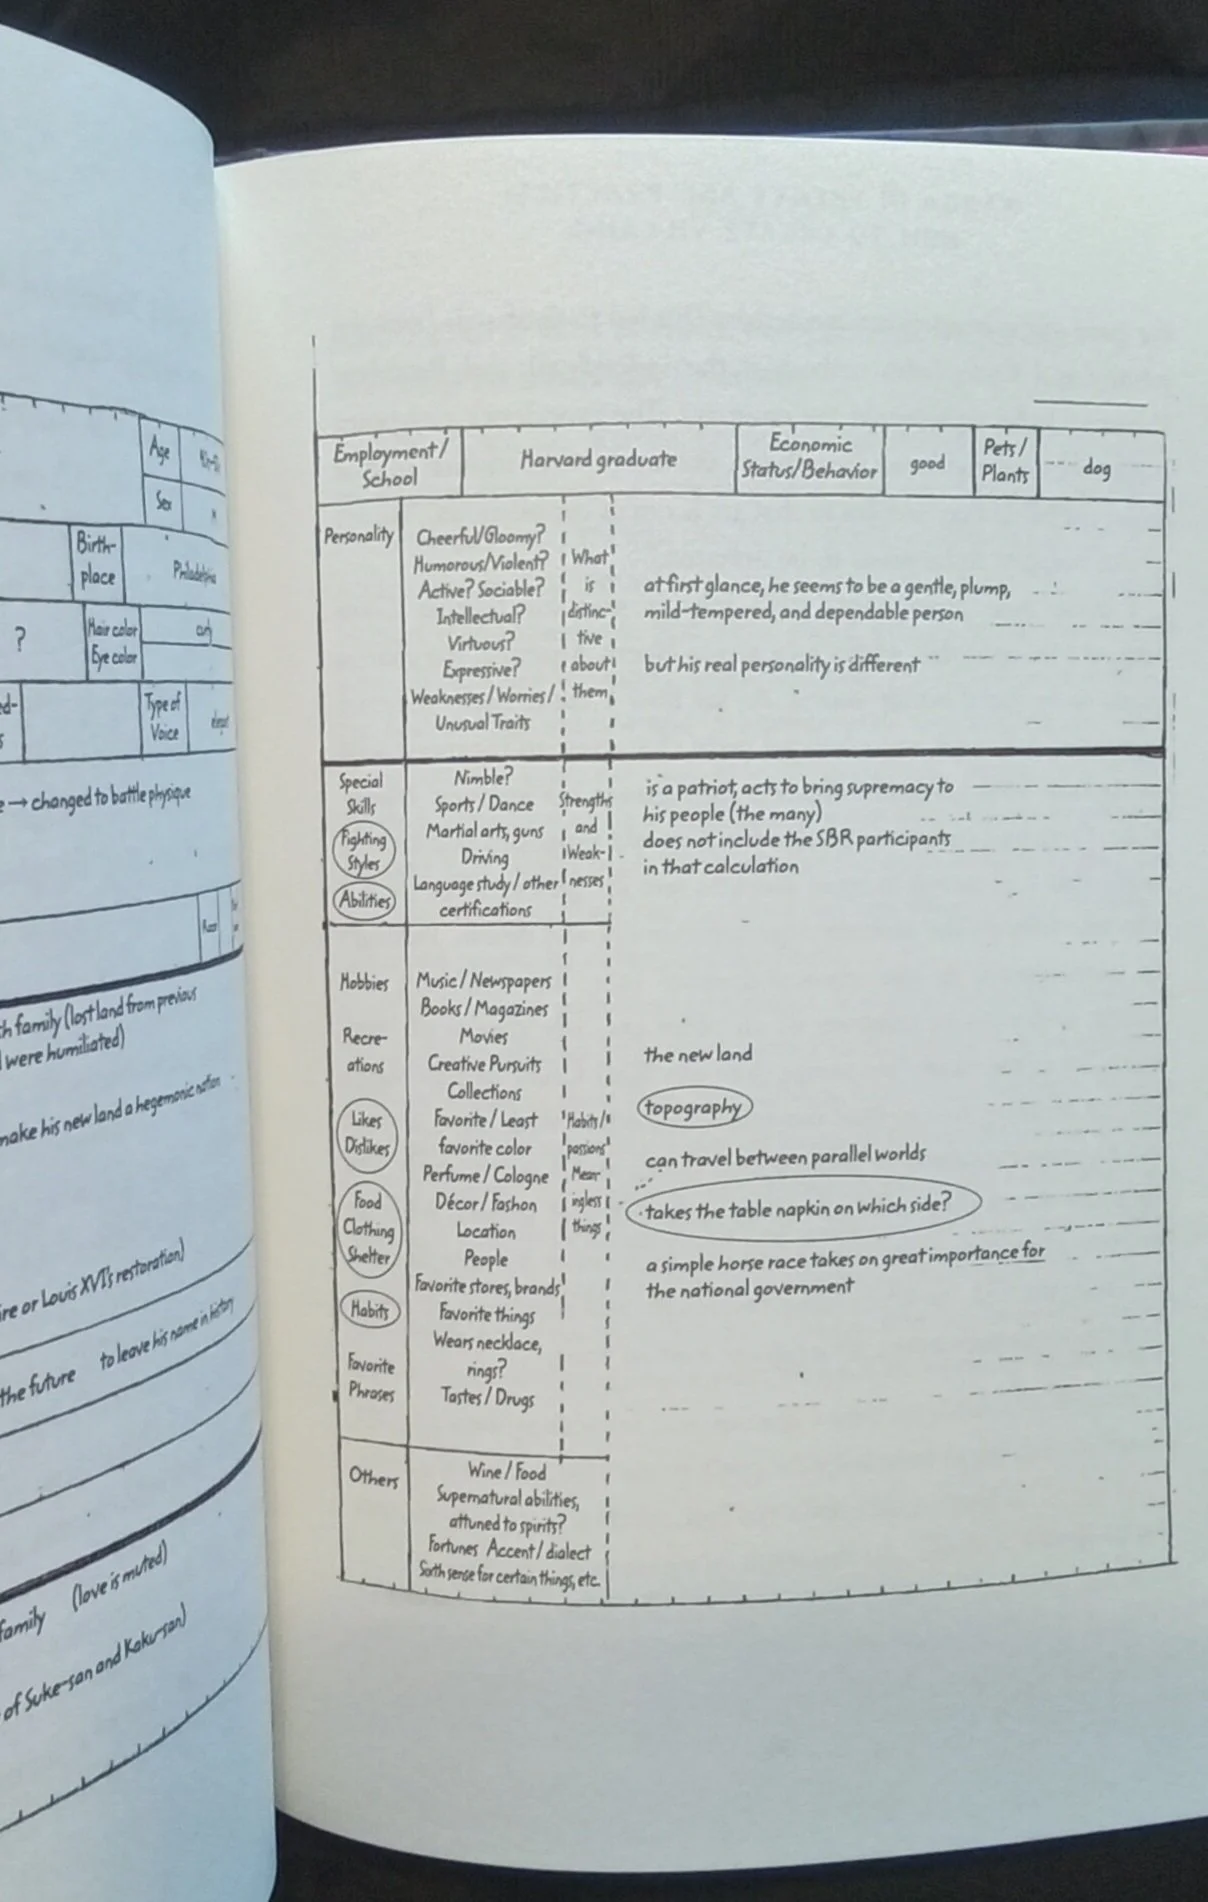 Age
Sex
Birth-
place
Philadelphia
?
Hair color
Eye color
curly
ed-
s
Type of
Voice
elegant
e → changed to battle physique
Race
th family (lost land from previous
were humiliated)
make his new land a hegemonic nation
ire or Louis XVI's restoration)
the future to leave his name in history
family (love is muted)
of Suke-san and Kaku-san)
Employment/
School
Harvard graduate
Economic
Status/Behavior
good
Pets/
Plants
dog
Personality
Cheerful/Gloomy?
Humorous/Violent?
Active? Sociable?
Intellectual?
Virtuous?
Expressive?
Weaknesses / Worries /
Unusual Traits
What
is
distinc-
tive
about
them
at first glance, he seems to be a gentle, plump,
mild-tempered, and dependable person
but his real personality is different
Special
Skills
Fighting
Styles
Abilities
Nimble?
Sports / Dance
Martial arts, guns
Driving
Language study / other
certifications
Strengths
and
Weak-
nesses
is a patriot, acts to bring supremacy to
his people (the many)
does not include the SBR participants
in that calculation
Hobbies
Recre-
ations
Likes
Dislikes
Food
Clothing
Shelter
Habits
Favorite
Phrases
Music / Newspapers
Books / Magazines
Movies
Creative Pursuits
Collections
Favorite / Least
favorite color
Perfume / Cologne
Décor / Fashon
Location
People
Favorite stores, brands
Favorite things
Wears necklace,
rings?
Tastes / Drugs
Habits /
passions
Mean-
ingless
things
the new land
topography
can travel between parallel worlds
takes the table napkin on which side?
a simple horse race takes on great importance for
the national government
Others
Wine / Food
Supernatural abilities,
attuned to spirits?
Fortunes Accent / dialect
Sixth sense for certain things, etc.